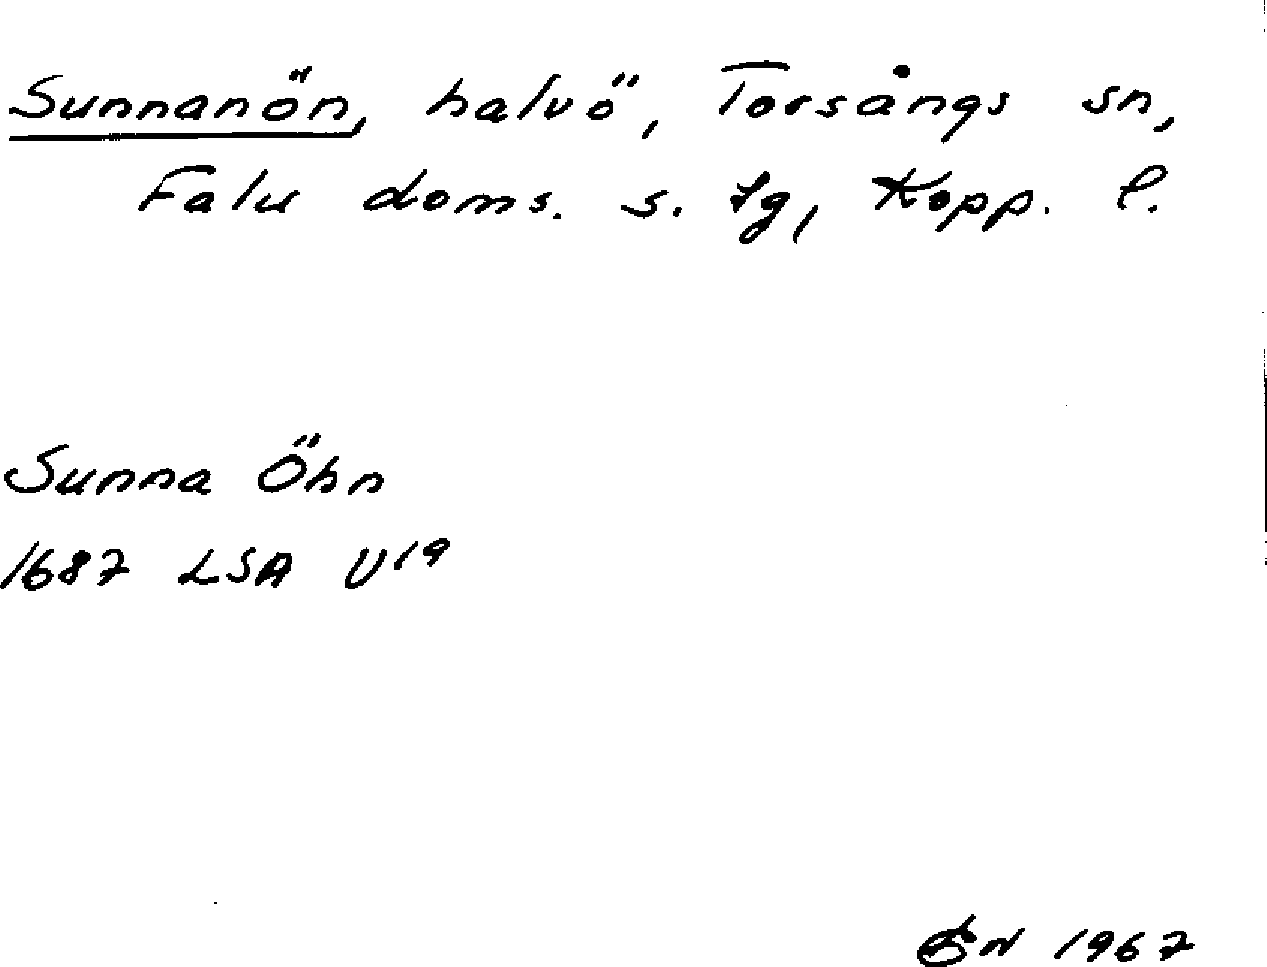 Sunnanön, halvö, Torsångs sn,
Falu doms. s. tg, Kopp. l.
Sunna Öhn
1687 LSA U19
1967